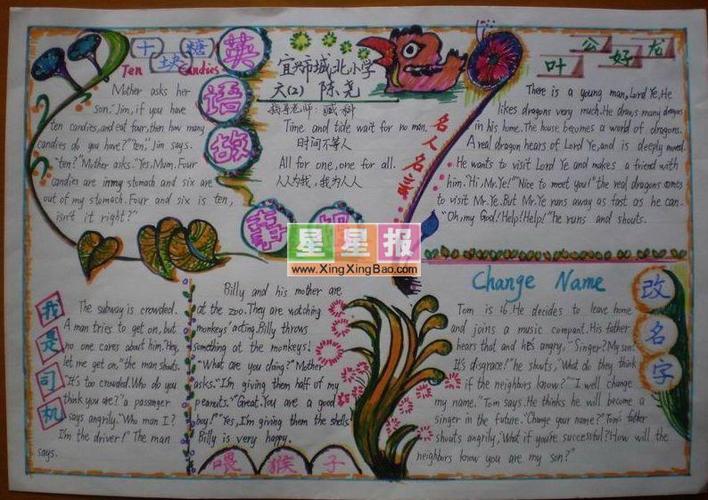 十块糖
Ten Candies
Mother asks her
son,"Jim, if you have
ten candies, and eat four, then how many
candies do you have?" "ten," Jim says.
"ten?" Mother asks. "Yes, Mum. Four
candies are in my stomach and six are
out of my stomach. Four and six is ten,
isn't it right?"
英
语
故
事
宜兴市城北小学
六(2) 陈尧
指导老师:
Time and tide wait for no man.
时间不等人
All for one, one for all.
人人为我,我为人人
名人名言
叶公好龙
There is a young man, Lord Ye. He
likes dragons very much. He draws many dragons
in his home. The house becomes a world of dragons.
A real dragon hears of Lord Ye, and is deeply moved.
He wants to visit Lord Ye and makes a friend with
him. "Hi, Mr. Ye!" "Nice to meet you!" the real dragons comes
to visit Mr. Ye. But Mr. Ye runs away as fast as he can.
"Oh, my God! Help! Help!" he runs and shouts.
星星报
www.XingXingBao.com
我是司机
The subway is crowded.
A man tries to get on, but
no one cares about him. "Hey,
let me get on," the man shouts.
"It's too crowded. Who do you
think you are?" a passenger
says angrily. "Who am I?
I'm the driver!" The man
says.
Billy and his mother are
at the zoo. They are watching
monkeys' acting. Billy throws
something at the monkeys!
"What are you doing?" Mother
asks. "I'm giving them half of my
peanuts." "Great. You are a good
boy!" "Yes, I'm giving them the shells."
Billy is very happy.
喂猴子
Change Name
改名字
Tom is 16. He decides to leave home
and joins a music compant. His father
hears that and he's angry, "Singer? My son?
It's disgrace!" he shouts, "What do they think
if the neighbors know?" "I well change
my name." Tom says. He thinks he will become a
singer in the future. "Change your name?" Tom's father
shouts angrily, "What if you're successful? How will the
neighbors know you are my son?"